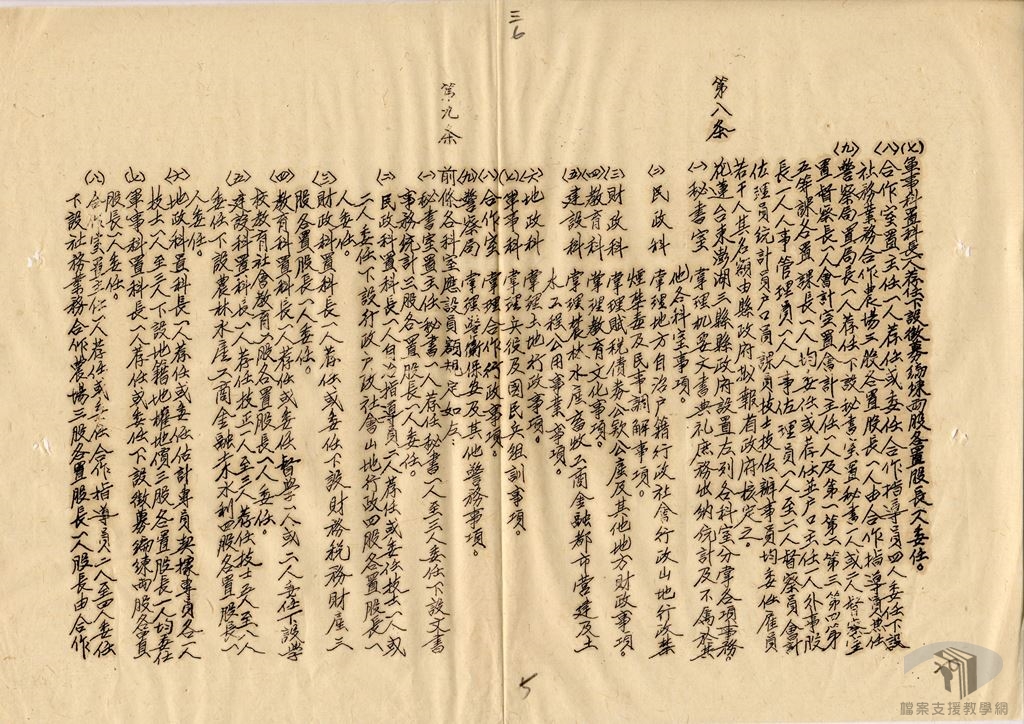 三6
(七)軍事科置科長一人荐任下設徵募編練兩股各置股長一人委任。
(八)合作室置主任一人荐任或委任合作指導員四人委任下設
社務業務合作農場三股各置股長一人由合作指導員兼任
(九)警察局置局長一人荐任下設秘書室置秘書一人或二人督察室
置督察長一人會計室置會計主任一人及第一第二第三第四第
五等課各置課長一人均委任或荐任並戶口主任一人外事股
長一人人事管理員一人人事佐理員一人至二人督察員會計
佐理員統計員戶口員課員技士技佐辦事員均委任雇員
若干人其名額由縣政府擬報省政府核定之。
第八条
花蓮台東澎湖三縣縣政府設置左列各科室分掌各項事務。
(一)秘書室 掌理机要文書典礼庶務出納統計及不屬於其
他各科室事項。
(二)民政科 掌理地方自治戶籍行政社會行政山地行政禁
煙禁毒及民事調解事項。
(三)財政科 掌理賦税債券公欵公産及其他地方財政事項。
(四)教育科 掌理教育文化事項。
(五)建設科 掌理農林水産畜牧工商金融都市營建及土
木工程公用事業等事項。
(六)地政科 掌理土地行政事項。
(七)軍事科 掌理兵役及國民兵組訓事項。
(八)合作室 掌理合作行政事項。
(九)警察局 掌理警衛保安及其他警務事項。
第九条
前條各科室應設員額規定如左：
(一)秘書室置主任秘書一人荐任秘書一人至三人委任下設文書
事務統計三股各置股長一人委任。
(二)民政科置科長一人自治指導員二人荐任或委任技士一人或
二人委任下設行政戶政社會山地行政四股各置股長一
人委任。
(三)財政科置科長一人荐任或委任下設財務税務財産三
股各置股長一人委任。
(四)教育科置科長一人荐任或委任督學一人或二人委任下設學
校教育社會教育二股各置股長一人委任。
(五)建設科置科長一人荐任技正一人至三人荐任技士五人至八人
委任下設農林水産工商金融土木水利四股各置股長一
人委任。
(六)地政科置科長一人荐任或委任估計專員契據專員各一人
技士一人至三人下設地籍地權地價三股各置股長一人均委任
(七)軍事科置科長一人荐任或委任下設徵募編練兩股各置
股長一人委任。
(八)合作室置主任一人荐任或委任合作指導員二人至四人委任
下設社務業務合作農場三股各置股長一人股長由合作
5
檔案支援教學網